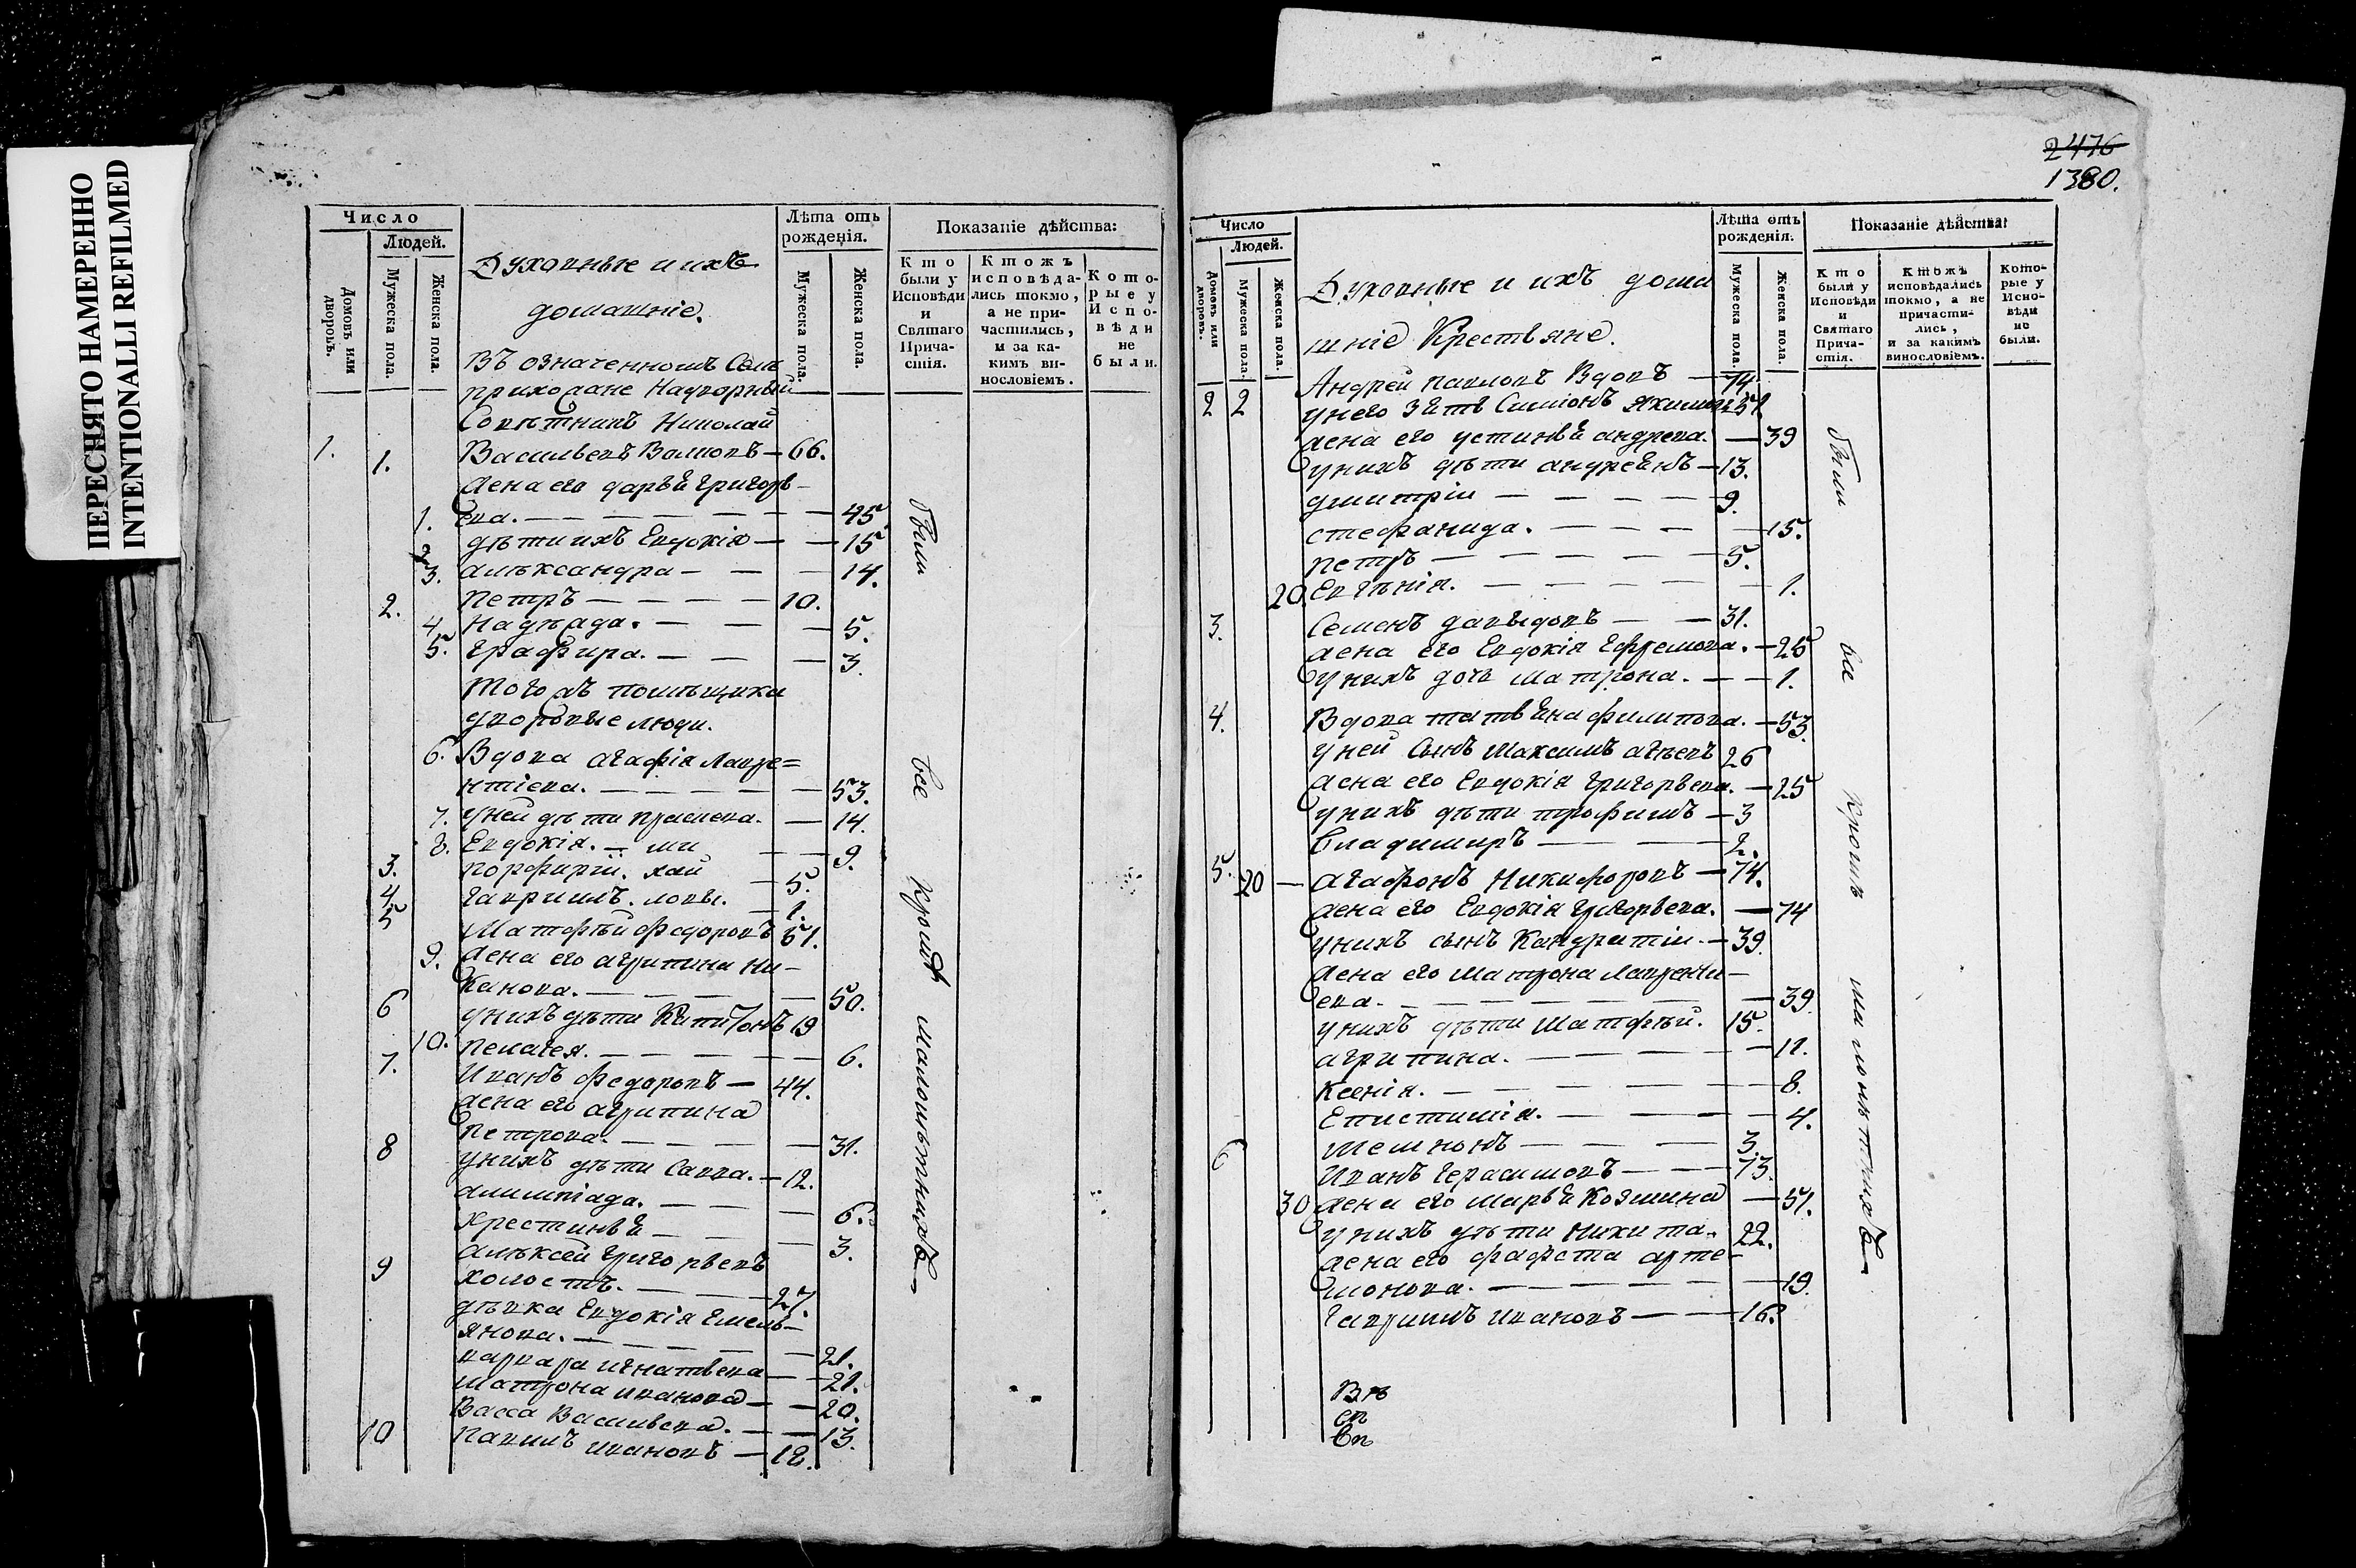 ПЕРЕСНЯТО НАМЕРЕННО
INTENTIONALLI REFILMED
Число
Людей.
Домовъ или дворовъ.
Мужеска пола.
Женска пола.
Духовные и ихъ
домашніе.
Лѣта отъ рожденія.
Мужеска пола.
Женска пола.
Показаніе дѣйства:
Кто были у Исповѣди и Святаго Причастія.
Ктожъ исповѣдались токмо, а не причастились, и за какимъ винословіемъ.
Которые у Исповѣди не были.
Въ означенномъ Селѣ
прихожане Надворный
Совѣтникъ Николай
1. 1. Васильевъ Волковъ — 66.
жена его дарья григорь-
1. ева. — 45
дѣти ихъ Евдокія — 15
3. алѣксандра — 14.
2. Петръ — 10.
4. Надѣжда. — 5.
5. Графира. — 3.
Тогожъ помѣщика
дворовые люди.
6. Вдова агафія Лавре=
нтіева. — 53.
7. Уней дѣти прасцева. — 14.
8. Евдокія. — ми — 9.
3. порфирій. хай — 5.
4. гаврилъ. ловы. — 1.
5 Матфѣй Федоровъ 51.
9. жена его агрипина ни-
канова. — 50.
6 унихъ дѣти Капитонъ 19
10. пелагея. — 6.
7. Иванъ федоровъ — 44.
жена его агрипина
Петрова. — 31.
8 унихъ дѣти Савва. — 12.
алимпіада. — 6.
христинья — 3.
алѣксей григорьевъ
9 холостъ. — 27.
дѣвка Евдокія Емель-
янова. — 21.
варвара игнатьева — 21.
матрона иванова — 20.
Васса Васильева. — 13.
10 павилъ ивановъ — 18.
были все кромѣ малолѣтнихъ
2476
1380.
Число
Людей.
Домовъ или дворовъ.
Мужеска пола.
Женска пола.
Духовные и ихъ дома
шніе Крестьяне.
Лѣта отъ рожденія.
Мужеска пола.
Женска пола.
Показаніе дѣйства:
Кто были у Исповѣди и Святаго Причастія.
Ктожъ исповѣдались токмо, а не причастились, и за какимъ винословіемъ.
Которые у Исповѣди не были.
Андрей павловъ Вдовъ — 74.
2 2 унего зять Симіонъ Якимовъ 51.
жена его устинья андрева. — 39
унихъ дѣти андреянъ — 13.
дмитріи — 9.
стефанида. — 15.
петръ — 5.
20. Евгѣнія. — 1.
3. Семенъ давыдовъ — 31.
жена его Евдокія Ефремова. — 25
унихъ дочь матрона. — 1.
4. Вдова татьяна филипова. — 53.
уней сынъ Максимъ агѣевъ 26
жена его Евдокія григорьева. — 25
унихъ дѣти трофимъ — 3
Владимиръ — 2.
5. 20 — агафонъ Никифоровъ — 74.
жена его Евдокія григорьева. — 74
унихъ сынъ Кандратіи. — 39.
жена его матрона лаврентi-
ева. — 39
унихъ дѣти Матфѣй. 15.
агрипина. — 11.
Ксенія. — 8.
Епистимія. — 4.
Мемнонъ — 3.
6 Иванъ герасимовъ — 73.
30 жена его марья Козмина — 51.
унихъ дѣти Никита. 22.
жена его фафста арте-
монова. — 19.
гаврилъ ивановъ — 16.
были все кромѣ малолѣтнихъ
Въ
сп
вп